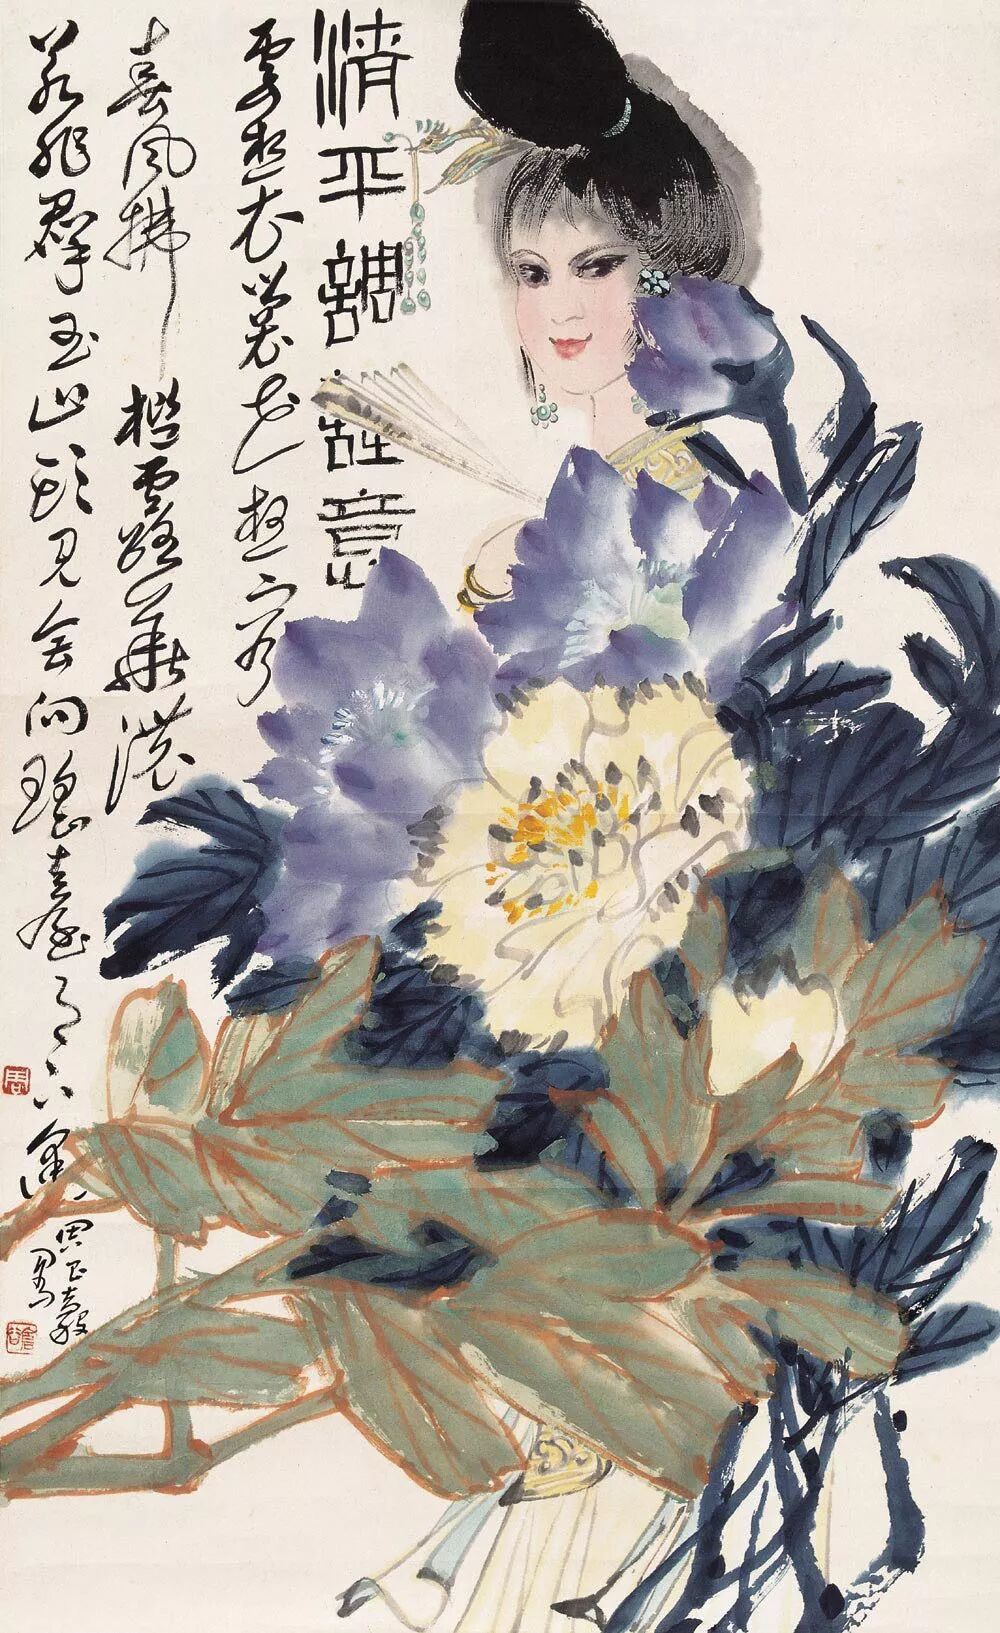 清平調詩意
雲想衣裳花想容
春風拂檻露華濃
若非群玉山頭見會向瑤臺月下逢
周昌穀
周